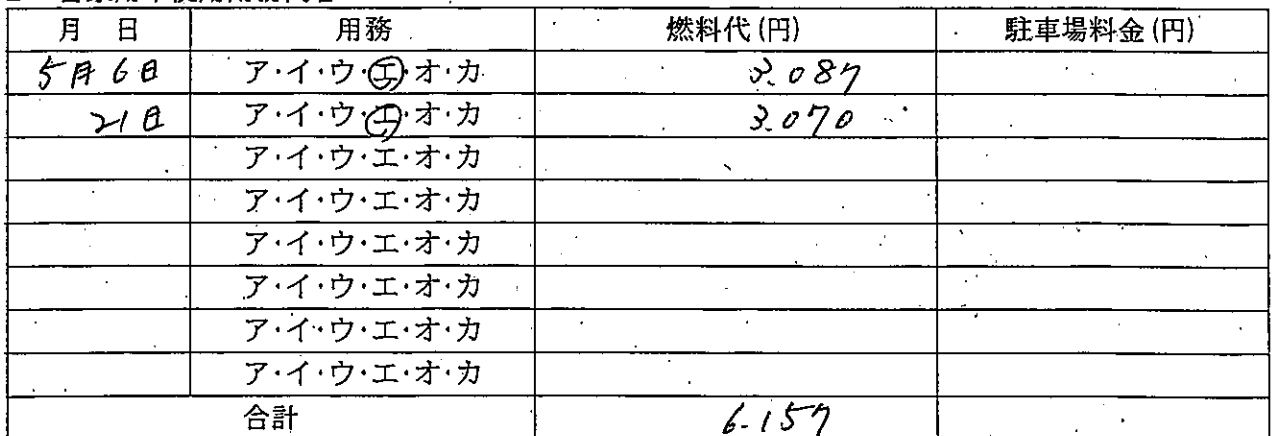 月 日 用務 燃料代(円) 駐車場料金(円)
5月6日 ア・イ・ウ・エ・オ・カ 3.087
21日 ア・イ・ウ・エ・オ・カ 3.070
ア・イ・ウ・エ・オ・カ
ア・イ・ウ・エ・オ・カ
ア・イ・ウ・エ・オ・カ
ア・イ・ウ・エ・オ・カ
ア・イ・ウ・エ・オ・カ
ア・イ・ウ・エ・オ・カ
合計 6.157